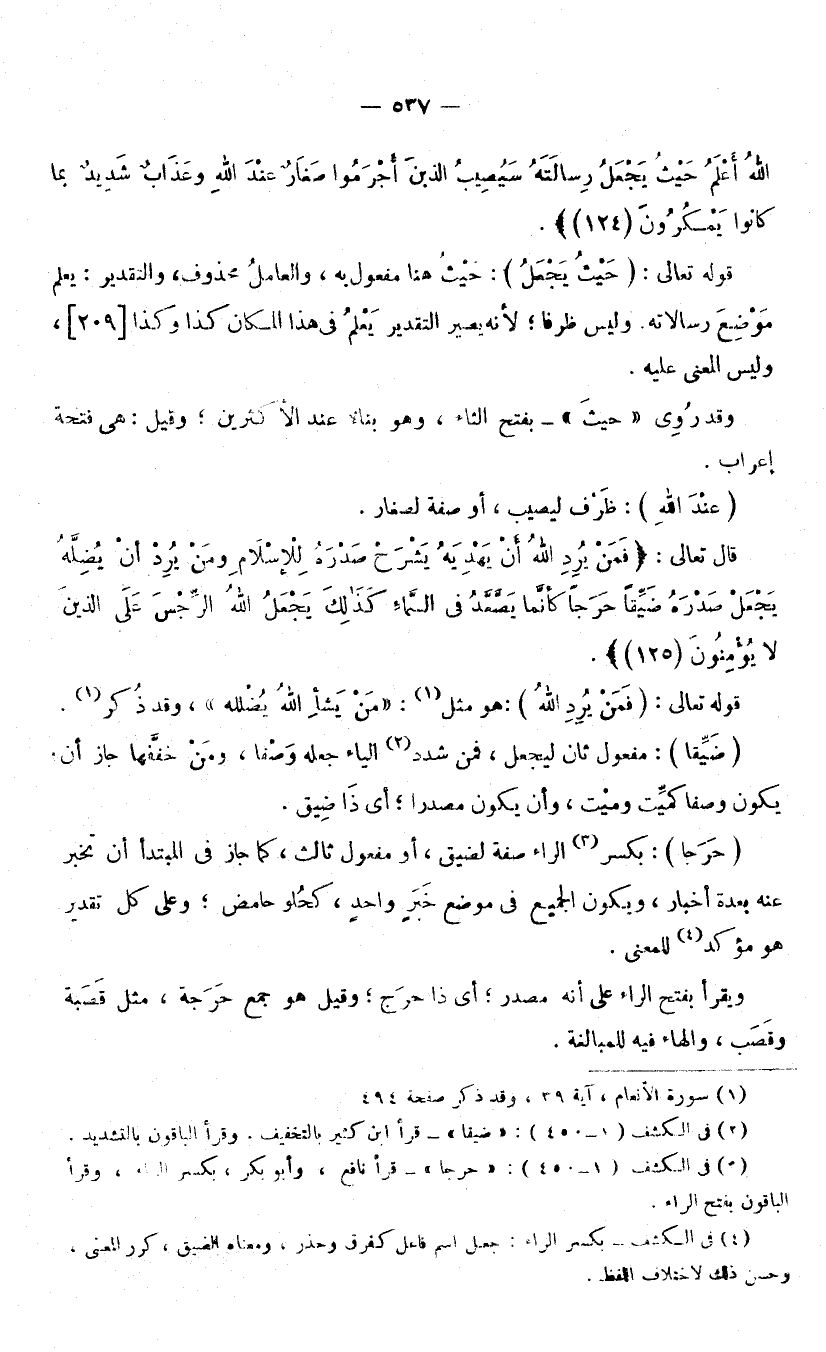 — ٥٣٧ —
اللهُ أَعْلَمُ حَيْثُ يَجْعَلُ رِسالَتَهُ سَيُصِيبُ الذينَ أَجْرَمُوا صَغَارٌ عِنْدَ اللهِ وعَذَابٌ شَدِيدٌ بما
كانوا يَمْكُرُونَ (١٢٤)﴾ .
قوله تعالى : ( حَيْثُ يَجْعَلُ ) : حَيْثُ هنا مفعول به ، والعاملُ محذوف، والتقدير : يعلم
مَوْضِعَ رسالاته. وليس ظرفا ؛ لأنه يصير التقدير يَعْلَمُ فى هذا المكان كذا وكذا [٢٠٩] ،
وليس المعنى عليه .
وقد رُوِى « حيثَ » ــ بفتح الثاء ، وهو بناء عند الأكثرين ؛ وقيل : هى فتحة
إعراب .
( عِنْدَ اللهِ ) : ظَرْف ليصيب ، أو صفة لصغار .
قال تعالى : ﴿ فَمَنْ يُرِدِ اللهُ أَنْ يَهْدِيَهُ يَشْرَحْ صَدْرَهُ لِلْإِسْلَامِ ومَنْ يُرِدْ أنْ يُضِلَّهُ
يَجْعَلْ صَدْرَهُ ضَيِّقاً حَرَجاً كأنَّما يَصَّعَّدُ فى السَّمَاءِ كَذَٰلِكَ يَجْعَلُ اللهُ الرِّجْسَ عَلَى الذينَ
لا يُؤْمِنُونَ (١٢٥)﴾ .
قوله تعالى : ( فَمَنْ يُرِدِ اللهُ ) : هو مثل(١) : «مَنْ يَشأِ اللهُ يُضْلله » ، وقد ذُكر(١) .
( ضَيِّقا ) : مفعول ثان ليجعل ، فمن شدد(٢) الياء جعله وَصْفا ، ومَنْ خفَّفها جاز أن
يكون وصفا كميِّت وميْت ، وأن يكون مصدرا ؛ أى ذَا ضِيق .
( حَرَجا ) : بكسر(٣) الراء صفة لضيق ، أو مفعول ثالث ، كما جاز فى المبتدأ أن تخبر
عنه بعدة أخبار ، ويكون الجميع فى موضع خَبَرٍ واحدٍ ، كحُلو حامض ؛ وعلى كل تقدير
هو مؤكد(٤) للمعنى .
ويقرأ بفتح الراء على أنه مصدر ؛ أى ذا حرج ؛ وقيل هو جمع حَرَجة ، مثل قَصَبة
وقصَب ، والهاء فيه للمبالغة .
(١) سورة الأنعام ، آية ٣٩ ، وقد ذكر صفحة ٤٩٤
(٢) فى الكشف ( ١ــ٤٥٠ ) : « ضيقا » ــ قرأ ابن كثير بالتخفيف . وقرأ الباقون بالتشديد .
(٣) فى الكشف ( ١ــ٤٥٠ ) : « حرجا » ــ قرأ نافع ، وأبو بكر ، بكسر الراء ، وقرأ
الباقون بفتح الراء .
(٤) فى الكشف ــ بكسر الراء : جعل اسم فاعل كفرق وحذر ، ومعناه الضيق ، كرر المعنى ،
وحسن ذلك لاختلاف اللفظ .